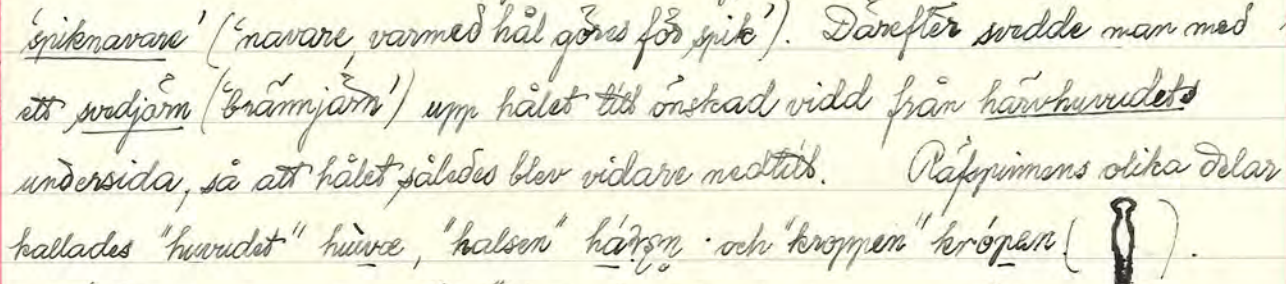 'spiknavare' ('navare, varmed hål göres för spik'). Därefter svedde man med
ett svedjärn ('brännjärn') upp hålet till önskad vidd från härvhuvudets
undersida, så att hålet således blev vidare nedtill. Räfspinnens olika delar
kallades "huvudet" hùvœ, "halsen" och "kroppen" krópen ( ).